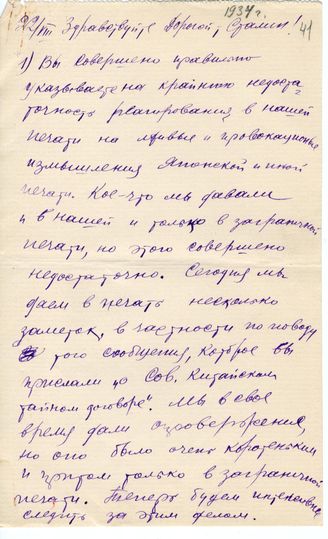 1934 г.
41
22/VIII Здравствуйте Дорогой, Сталин!
1) Вы совершено правильно
указываете на крайнюю недоста-
точность реагирования в нашей
печати на лживые и провокационые
измышления Японской и иной
печати. Кое-что мы давали
и в нашей и только в заграничной
печати, но этого совершено
недостаточно. Сегодня мы
даем в печать несколько
заметок, в частности по поводу
того сообщения, которое вы
прислали „о Сов. Китайском
тайном договоре". Мы в свое
время дали опровержение,
но оно было очень коротеньким
и притом только в заграничной
печати. Теперь будем интенсивно
следить за этим делом.